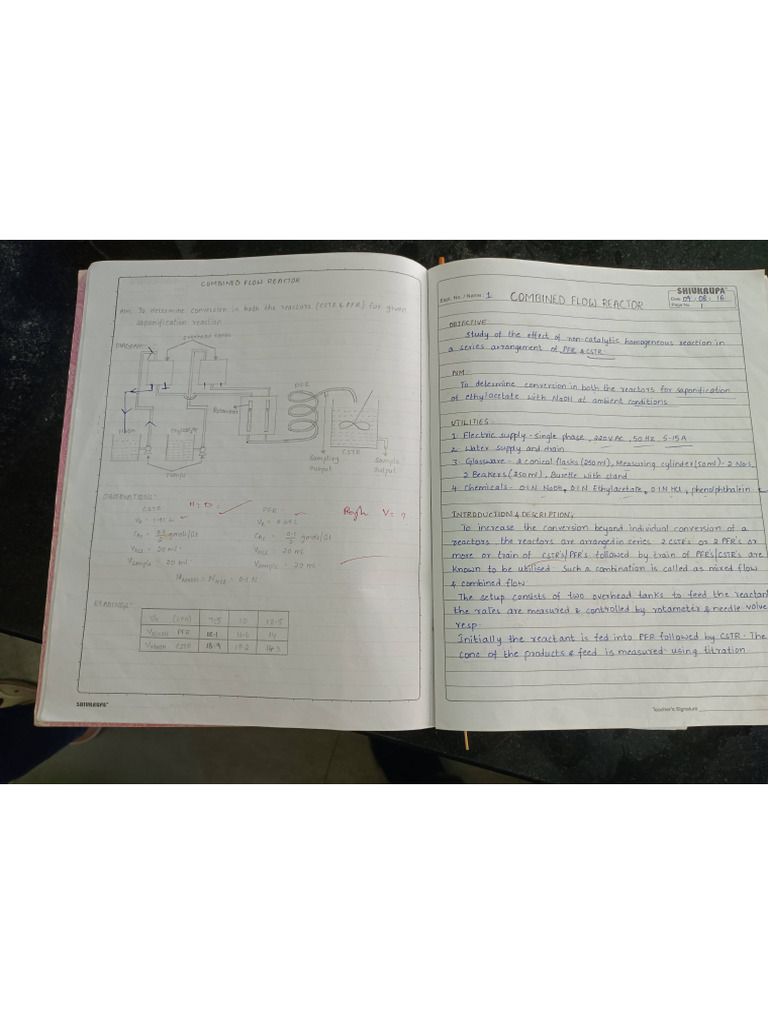 COMBINED FLOW REACTOR
AIM: To determine conversion in both the reactors (CSTR & PFR) for given
saponification reaction
DIAGRAM:
overhead tanks
PFR
Rotameter
NaOH
CSTR
Sampling
output
Sample
output
Pumps
OBSERVATIONS:
CSTR PFR V= ?
gmoli/lit gmoli/lit
= 20 ml = 20 mL
Vsample = 20 ml Vsample = 20 mL
= 0.1 N
READINGS:
(LPH) 7.5 10 12.5
VNaOH PFR 14
VNaOH CSTR
SHIVKRUPA®
Expt. No. / Name: 1 COMBINED FLOW REACTOR
SHIVKRUPA®
Date 09 08 16
Page No. 1
OBJECTIVE
Study of the effect of non-catalytic homogeneous reaction in
a series arrangement of PFR & CSTR.
AIM
To determine conversion in both the reactors for saponification
of ethylacetate with NaOH at ambient conditions.
UTILITIES
1. Electric supply - single phase, 220 V AC, 50 HZ, 5-15A
2. Water supply and drain
3. Glassware - 2 conical flasks (250ml), Measuring cylinder (50ml) - 2 Nos,
2 Beakers (250ml), Burette with stand
4. Chemicals - 0.1N NaOH, 0.1N Ethylacetate, 0.1N HCl, phenolphthalein
INTRODUCTION & DESCRIPTION:
To increase the conversion beyond individual conversion of a
reactors, the reactors are arranged in series 2 CSTR's or 2 PFR's or
more or train of CSTR's/PFR's followed by train of PFR's/CSTR's are
known to be utilised. Such a combination is called as mixed flow
& combined flow
The setup consists of two overhead tanks to feed the reactant
the rates are measured & controlled by rotameter & needle valve
resp.
Initially the reactant is fed into PFR followed by CSTR. The
conc of the products & feed is measured using titration
Teacher's Signature